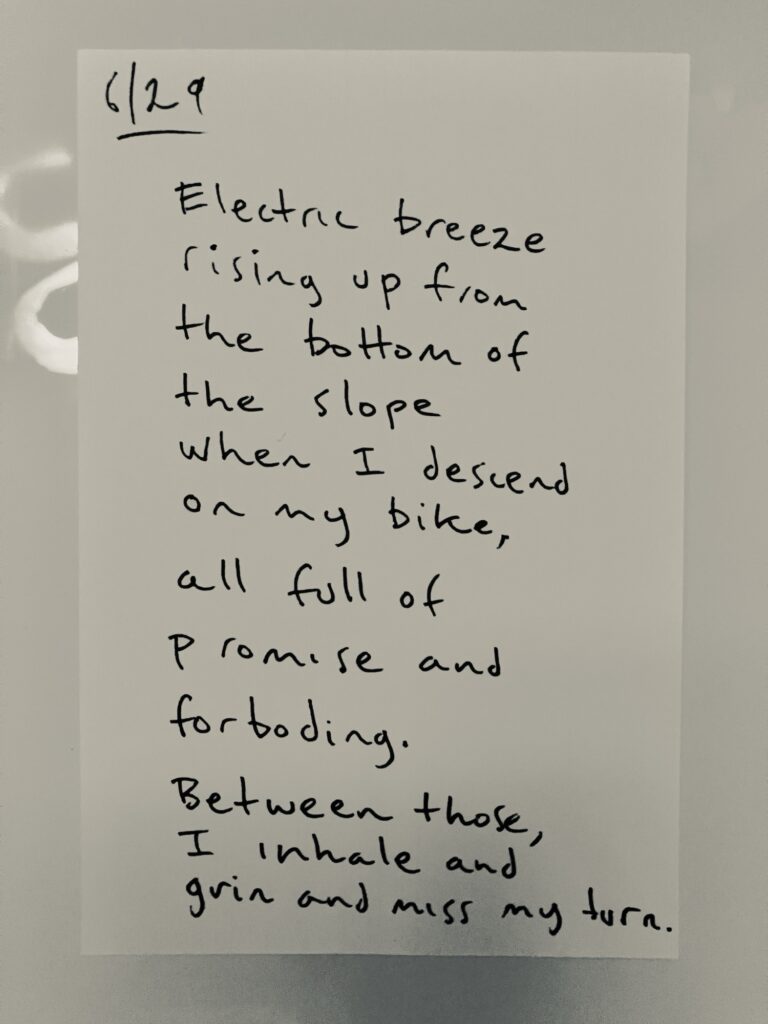 6/29
Electric breeze
rising up from
the bottom of
the slope
when I descend
on my bike,
all full of
promise and
forboding.
Between those,
I inhale and
grin and miss my turn.